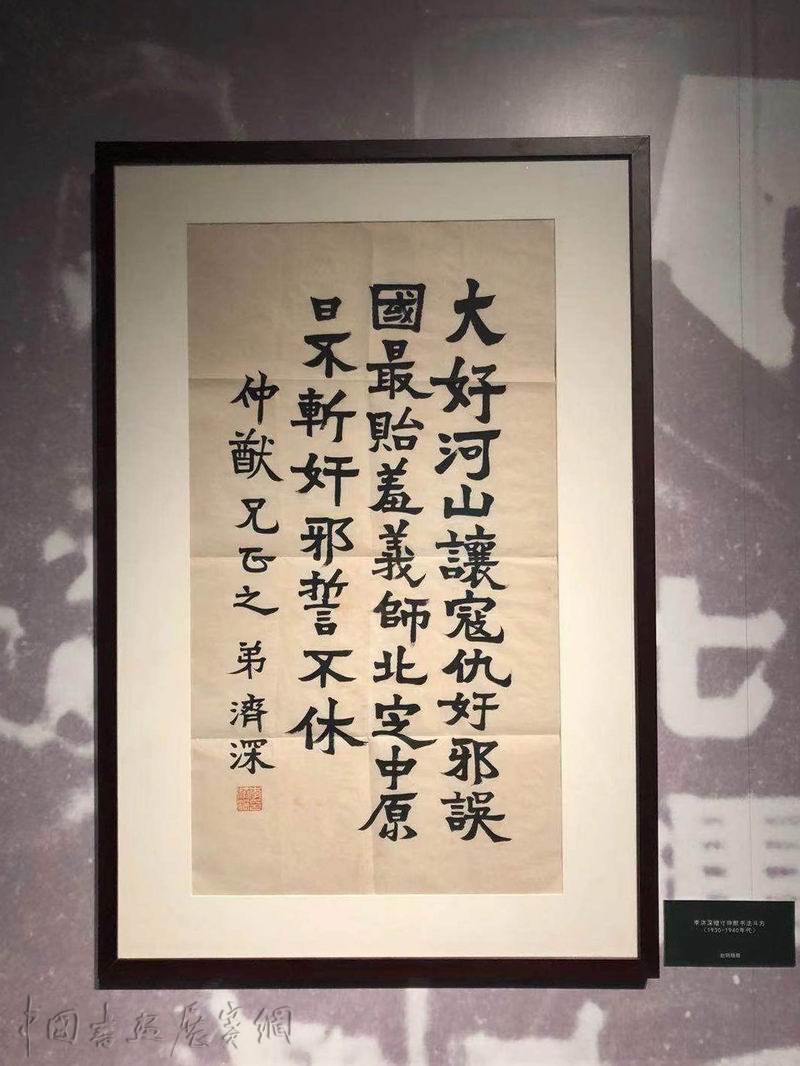 大好河山讓寇仇奸邪誤
國最貽羞義師北定中原
日不斬奸邪誓不休
仲猷兄正之 弟濟深
李济深赠寸仲猷书法斗方
(1930-1940年代)
七
中國書畫展賽網